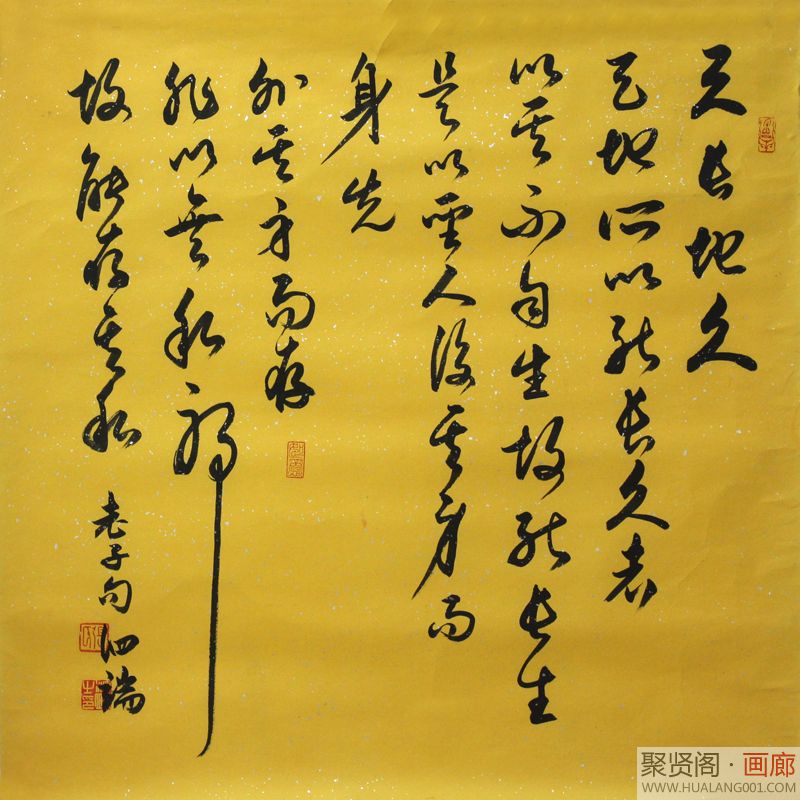 天長地久
天地所以能長久者
以其不自生故能長生
是以聖人後其身而
身先
外其身而存
非以無私耶
故能存其私
老子句
聚贤阁·画廊
WWW.HUALANG001.COM